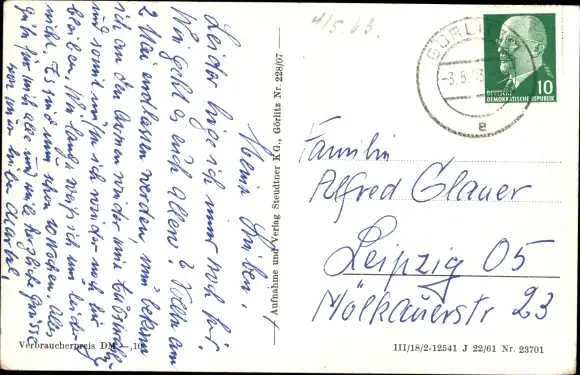 Meine Lieben.
Leider liege ich immer noch hier.
Wie geht es euch allen? Sollte am
2 Mai entlassen werden, nun bekam
ich an den Armen wieder mir
und somit muss ich wieder noch hier
bleiben. Wie lange weiß ich nun leider
nicht. Es sind nun schon 10 Wochen. Alles
Gute für euch alle und viele herzliche Grüsse
von
4/5.63
GÖRLITZ
-3.5.63
e
10
DEUTSCHE
DEMOKRATISCHE REPUBLIK
Familie
Alfred Glauer
Leipzig O5
Mölkauerstr 23
Aufnahme und Verlag Steudtner KG., Görlitz Nr. 228/07
Verbraucherpreis DM –,10
III/18/2-12541 J 22/61 Nr. 23701